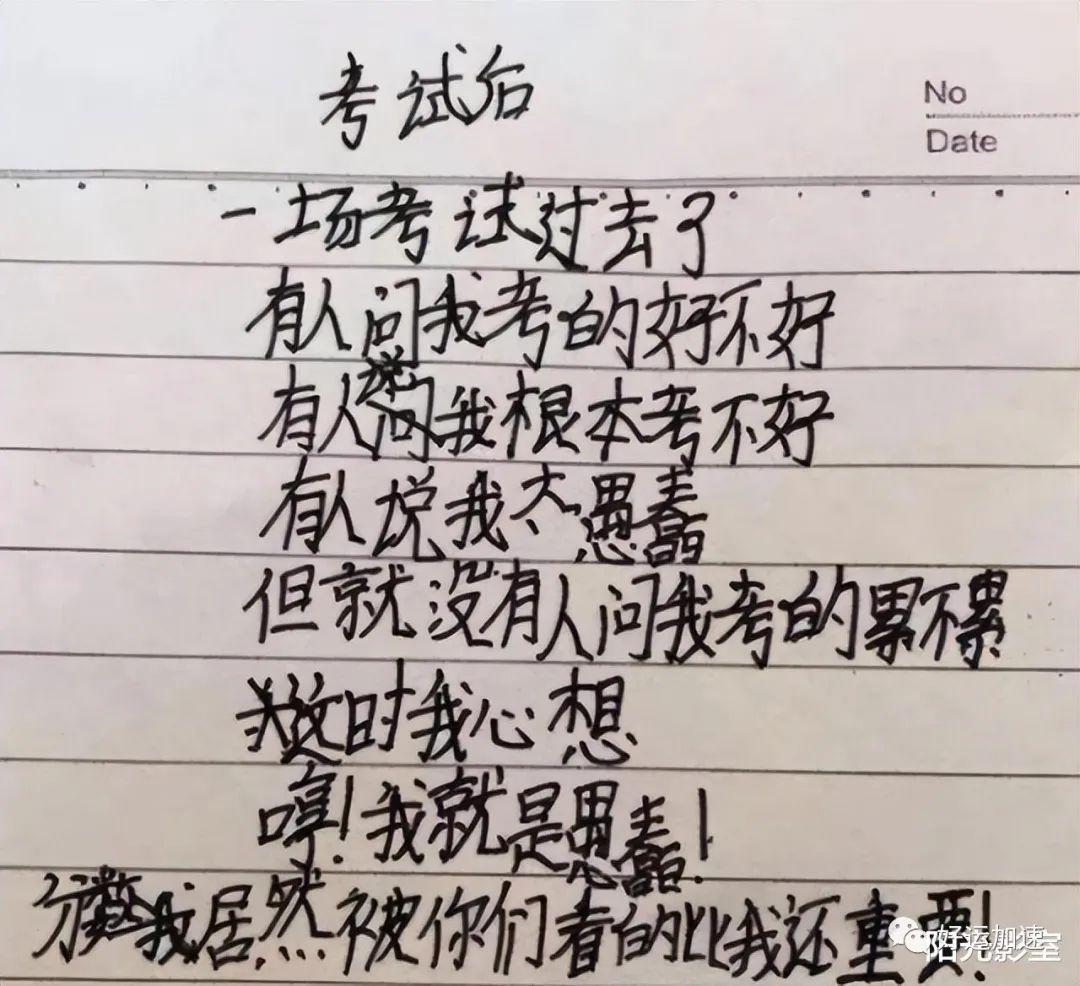 考试后
No
Date
一场考试过去了
有人问我考的好不好
有人说我根本考不好
有人说我太愚蠢
但就没有人问我考的累不累
这时我心想
哼!我就是愚蠢!
分数居然被你们看的比我还重要!
好运加速
阳光影室